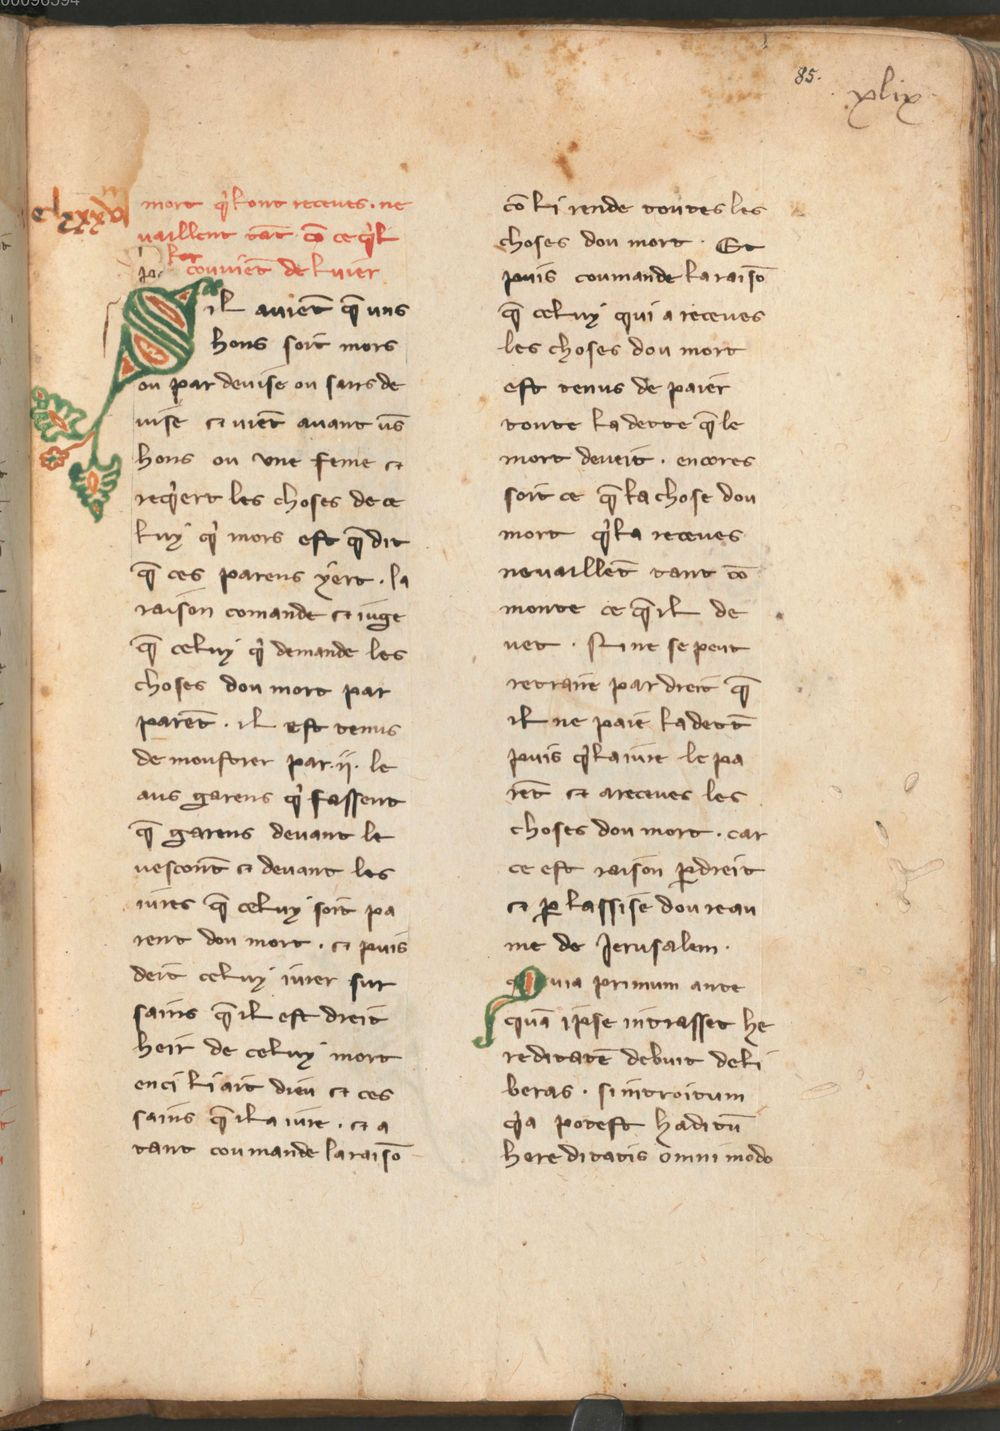 00096394
85.
xlix
clxxxvi
mort q̇ kont receues · ne
uaillent tāt cō ce q̇ l
kor couuiēt de liurer
Sil auiēt q̄ uns
hons soit mors
ou par deuise ou sans de
uise ⁊ uiēt auant ūs
hons ou vne feme ⁊
req̇ert les choses de ce
luy q̇ mors est q̄ dit
q̄ ces parens yert · la
raison comande ⁊ iuge
q̄ celuy q̇ demande les
choses dou mort par
parēt · il est tenus
de moustrer par · ij · le
aus garens q̇ fassent
q̄ garens deuant le
uescont ⁊ deuant les
iures q̄ celuy soit pa
rent dou mort · ⁊ puis
deit celuy iurer sur
sains q̄ il est dreit
heir de celuy mort
enci li ait dieu ⁊ ces
sains q̄ il a iure · ⁊ a
tant coumande la raisō
cō li rende toutes les
choses dou mort · Et
puis coumande la raisō
q̄ celuy qui a receues
les choses dou mort
est tenus de paier
toute la dette q̄ le
mort deueit · encores
soit ce q̄ la chose dou
mort q̇ la receues
ne uaillēt tant cō
monte ce q̄ il de
uet · Ni ne se peut
retraire par dreit q̄
il ne paie la dett̄
puis q̇ la iure le pa
rēt ⁊ a receues les
choses dou mort · car
ce est raison ꝑ dreit
⁊ ꝑ lassise dou reau
me de Jerusalem ·
Quia primum ante
quā ipse intrasset he
reditatē debuit deli
beras · si introitum
q̇a potest haditū
hereditatis omni modo